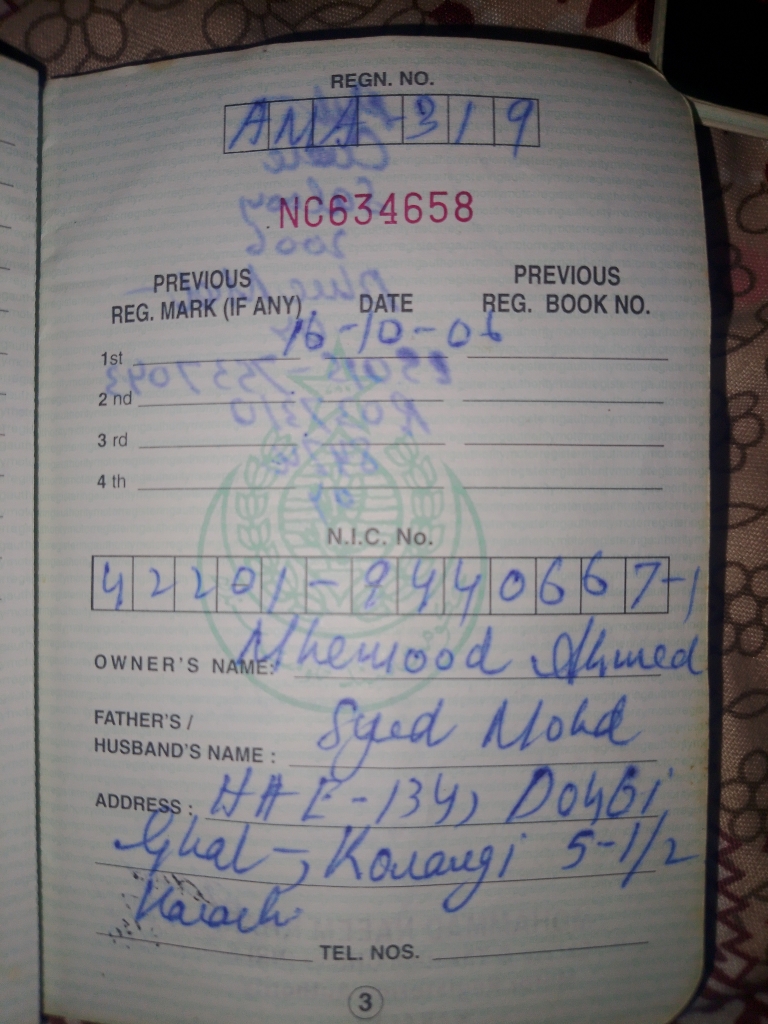 REGN. NO.
AMA-319
NC634658
PREVIOUS REG. MARK (IF ANY) DATE PREVIOUS REG. BOOK NO.
16-10-06
1st
2 nd
3 rd
4 th
N.I.C. No.
42201-9440667-1
OWNER'S NAME: Ahmed
FATHER'S /
HUSBAND'S NAME : Syed Mohd
ADDRESS : H# E-134,
Ghat -, Korangi 5-1/2
Karachi
TEL. NOS.
3